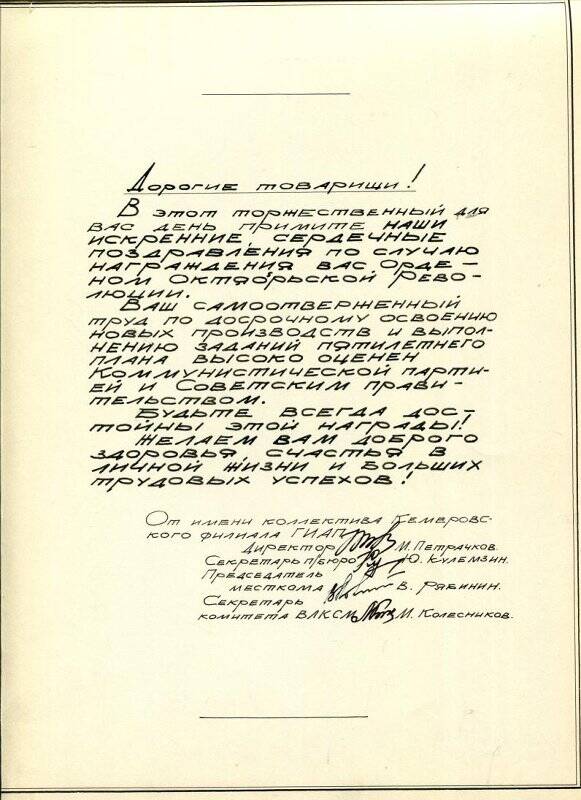 Дорогие товарищи!
В этот торжественный для
вас день примите наши
искренние, сердечные
поздравления по случаю
награждения вас Орде-
ном Октябрьской Рево-
люции.
Ваш самоотверженный
труд по досрочному освоению
новых производств и выпол-
нению заданий пятилетнего
плана высоко оценен
Коммунистической парти-
ей и Советским прави-
тельством.
Будьте всегда дос-
тойны этой награды!
Желаем вам доброго
здоровья, счастья в
личной жизни и больших
трудовых успехов!
От имени коллектива Кемеровс-
кого филиала ГИАП
Директор М. Петрачков.
Секретарь п/бюро Ю. Кулемзин.
Председатель
месткома В. Рябинин.
Секретарь
комитета ВЛКСМ М. Колесников.